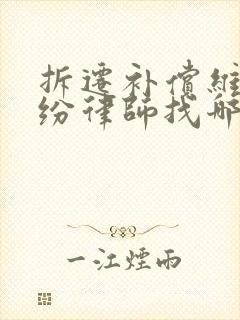 拆遷补償維
纷律師找哪
一江煙雨